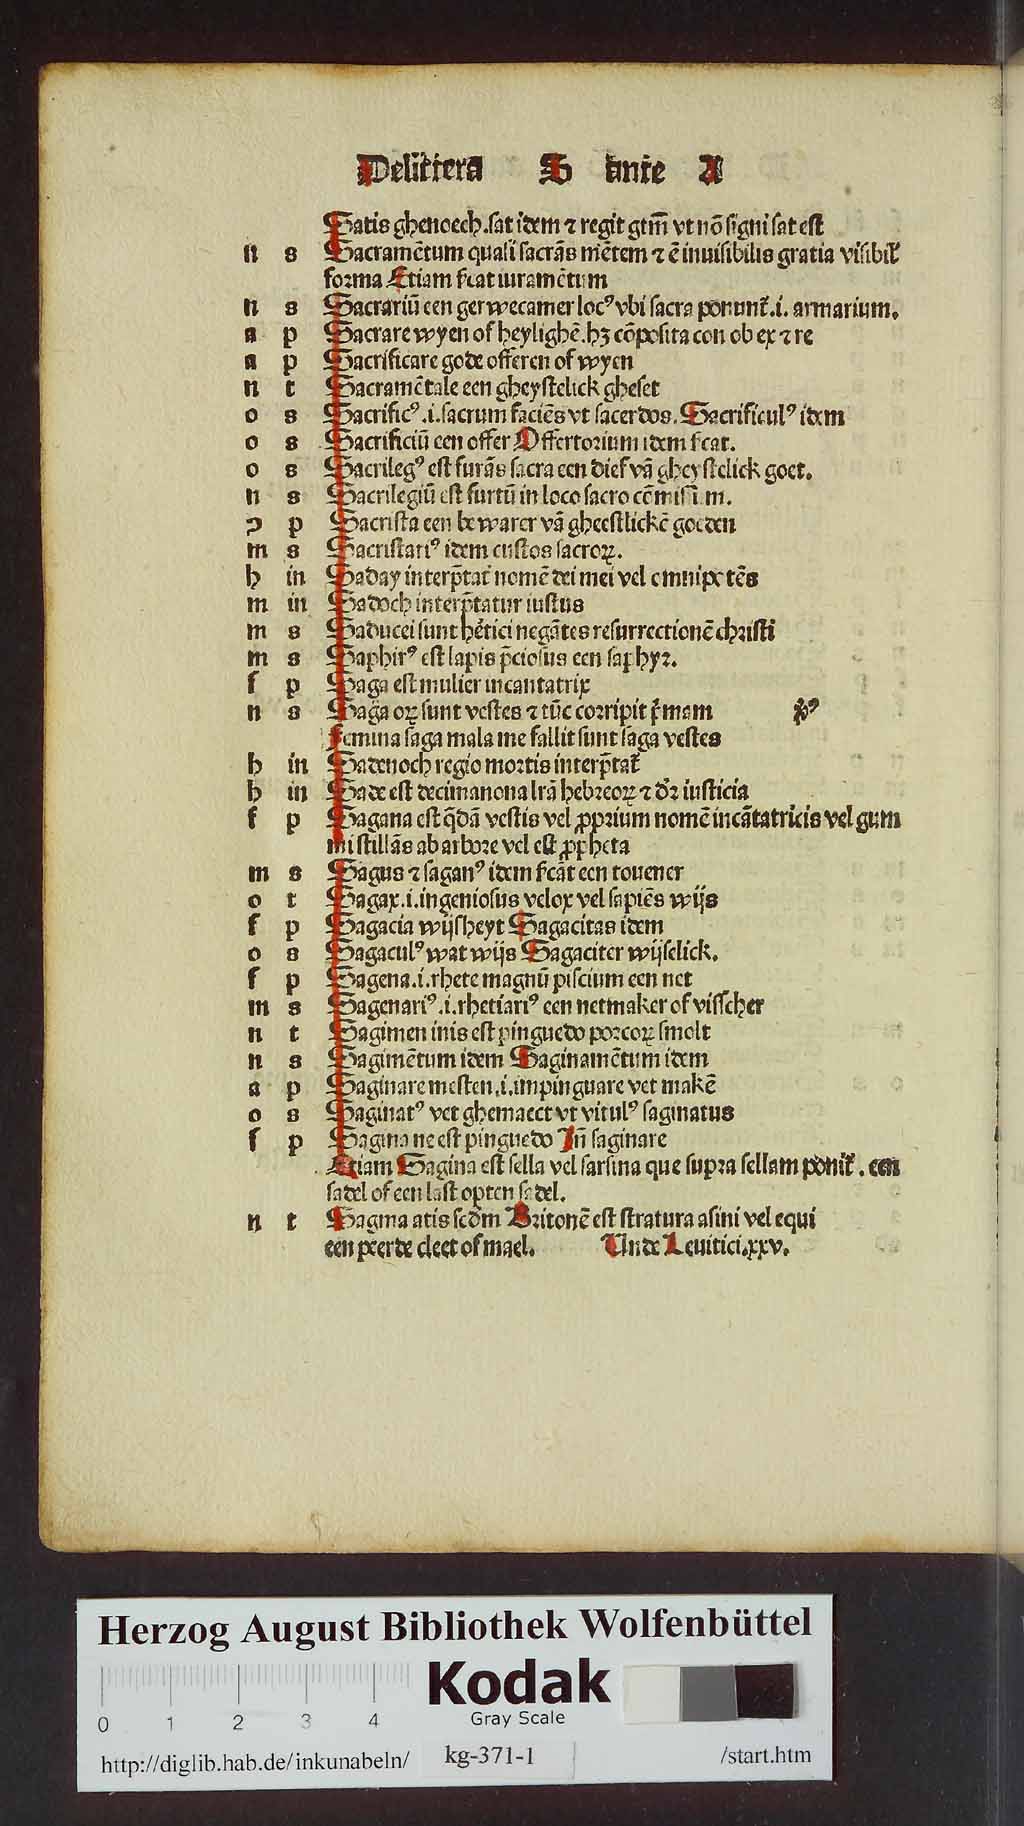 De littera S ante A
Satis ghenoech. sat idem ⁊ regit gtm̄ vt nō signi sat est
n s Sacramētum quasi sacrās mētem ⁊ ē inuisibilis gratia visibil̓
forma Etiam sr̄cat iuramētum
n s Sacrariū een gerwecamer locꝰ vbi sacra ponunt᷑.i. armarium.
a p Sacrare wyen of heylighē. hꝫ cōposita con ob ex ⁊ re
a p Sacrificare gode offeren of wyen
n t Sacramētale een gheystelick gheset
o s Sacrificꝰ .i. sacrum faciēs vt sacerdos. Sacrificulꝰ idem
o s Sacrificiū een offer Offertorium idem sr̄cat.
o s Sacrilegꝰ est furās sacra een dief vā gheystelick goet.
n s Sacrilegiū est furtū in loco sacro cōmissū.m.
ꝯ p Sacrista een bewarer vā gheestlickē goeden
m s Sacristariꝰ idem custos sacroꝝ.
h in Saday interp̄tat᷑ nomē dei mei vel omnipotēs
m in Sadoch interp̄tatur iustus
m s Saducei sunt hētici negātes resurrectionē christi
m s Saphirꝰ est lapis p̄ciosus een saphyr.
f p Saga est mulier incantatrix
n s Saga oꝝ sunt vestes ⁊ tūc corripit p̄mam v̓ꝰ
femina saga mala me fallit sunt saga vestes
h in Sadenoch regio mortis interp̄tat᷑
h in Sade est decimanona lrā hebreoꝝ ⁊ dr̄ iusticia
f p Sagana est q̄dā vestis vel ꝓprium nomē incātatricis vel gum
mi stillās ab arbore vel est ꝓpheta
m s Sagus ⁊ saganꝰ idem sr̄cāt een touener
o t Sagax .i. ingeniosus velox vel sapiēs wijs
f p Sagacia wijsheyt Sagacitas idem
o s Sagaculꝰ wat wijs Sagaciter wijselick.
f p Sagena .i. rhete magnū piscium een net
m s Sagenariꝰ .i. rhetiariꝰ een netmaker of visscher
n t Sagimen inis est pinguedo porcoꝝ smolt
n s Sagimētum idem Saginamētum idem
a p Saginare mesten .i. impinguare vet makē
o s Saginatꝰ vet ghemaect vt vitulꝰ saginatus
f p Sagina ne est pinguedo Jn̄ saginare
Etiam Sagina est sella vel sarsina que supra sellam ponit᷑. een
sadel of een last opten sadel.
n t Sagma atis scd̄m Britonē est stratura asini vel equi
een peerde cleet of mael. Unde Leuitici.xxv.
Herzog August Bibliothek Wolfenbüttel
0 1 2 3 4
Kodak
Gray Scale
http://diglib.hab.de/inkunabeln/ kg-371-1 /start.htm